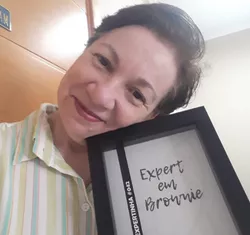 EXPERTINHA #042
Expert
em
Brownie